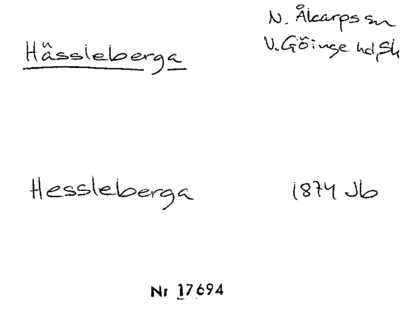 Hässleberga
N. Åkarps sn
V. Göinge hd, Sk
Hessleberga
1874 Jb
Nr 17694